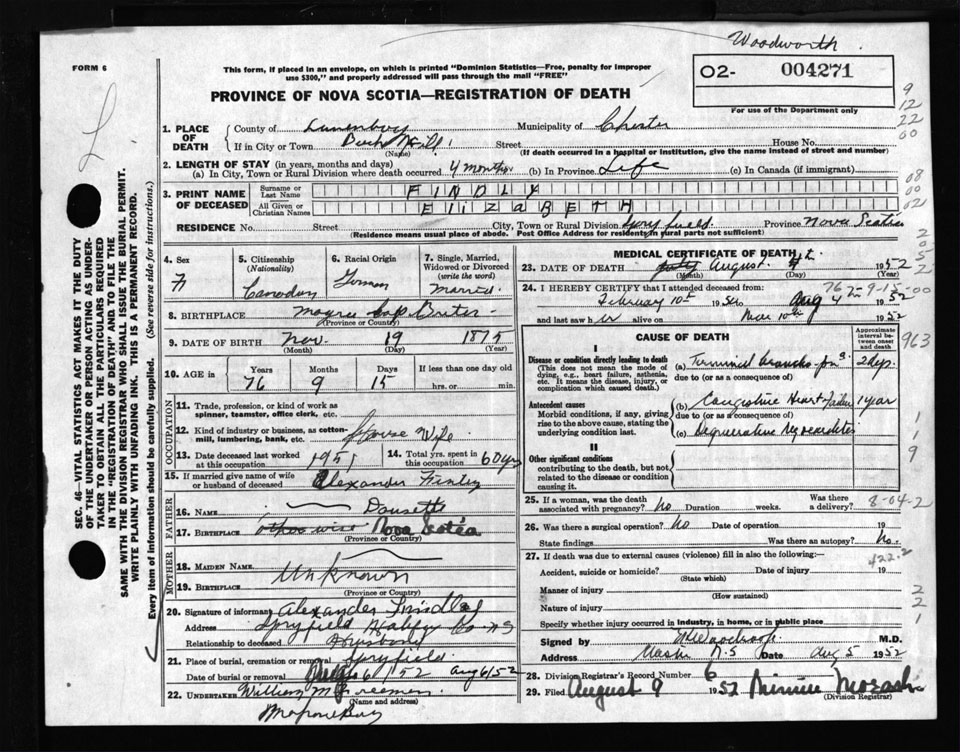 Woodworth
FORM 6
This form, if placed in an envelope, on which is printed "Dominion Statistics—Free, penalty for improper
use $300," and properly addressed will pass through the mail "FREE"
O2- 004271
For use of the Department only
PROVINCE OF NOVA SCOTIA—REGISTRATION OF DEATH
9
12
22
00
1. PLACE OF DEATH
County of Lunenburg Municipality of Chester
If in City or Town Street House No.
(Name) (If death occurred in a hospital or institution, give the name instead of street and number)
2. LENGTH OF STAY (in years, months and days)
(a) In City, Town or Rural Division where death occurred 4 months (b) In Province Life (c) In Canada (if immigrant)
08
00
02
3. PRINT NAME OF DECEASED
Surname or Last Name FINDLY
All Given or Christian Names ElizABETH
RESIDENCE No. Street City, Town or Rural Division Spryfield Province Nova Scotia
(Residence means usual place of abode. Post Office Address for residents in rural parts not sufficient)
4. Sex F
5. Citizenship (Nationality) Canadian
6. Racial Origin
7. Single, Married, Widowed or Divorced (write the word) Married
8. BIRTHPLACE
(Province or Country)
9. DATE OF BIRTH Nov. 19 1875
(Month) (Day) (Year)
10. AGE in Years Months Days If less than one day old
76 9 15 hrs. or min.
OCCUPATION
11. Trade, profession, or kind of work as spinner, teamster, office clerk, etc.
12. Kind of industry or business, as cotten-mill, lumbering, bank, etc. House Wife
13. Date deceased last worked at this occupation 1951
14. Total yrs. spent in this occupation 60 yrs
15. If married give name of wife or husband of deceased Alexander Finley
FATHER
16. Name
17. Birthplace Nova Scotia
(Province or Country)
MOTHER
18. Maiden Name
19. Birthplace Unknown
(Province or Country)
20. Signature of informant Alexander
Address Spryfield Halifax Co. NS
Relationship to deceased Husband
21. Place of burial, cremation or removal Spryfield
Date of burial or removal Aug 6/52
22. Undertaker William
(Name and address)
Mahone Bay
MEDICAL CERTIFICATE OF DEATH
23. DATE OF DEATH August 1952
(Month) (Day) (Year)
24. I HEREBY CERTIFY that I attended deceased from
February 10th 19 Aug 4 1952
and last saw her alive on 1952
CAUSE OF DEATH
Approximate interval between onset and death
I
Disease or condition directly leading to death
(This does not mean the mode of dying, e.g., heart failure, asthenia, etc. It means the disease, injury, or complication which caused death.)
(a) Terminal
due to (or as a consequence of)
Antecedent causes
Morbid conditions, if any, giving rise to the above cause, stating the underlying condition last.
(b) Congestive Heart Failure 1 year
due to (or as a consequence of)
(c) Degenerative Myocarditis
II
Other significant conditions
contributing to the death, but not related to the disease or condition causing it.
963
1
1
9
25. If a woman, was the death associated with pregnancy? No Duration weeks. Was there a delivery?
8-04-2
26. Was there surgical operation? No Date of operation 19
State findings Was there an autopsy? No.
27. If death was due to external causes (violence) fill in also the following:—
422.2
Accident, suicide or homicide? Date of injury 19
(State which)
Manner of injury
(How sustained)
Nature of injury
Specify whether injury occurred in industry, in home, or in public place
2
2
1
Signed by M.D.
Address N.S Date Aug 5 1952
28. Division Registrar's Record Number 6
29. Filed August 9 1952 Minnie
(Division Registrar)
SEC. 46—VITAL STATISTICS ACT MAKES IT THE DUTY
OF THE UNDERTAKER OR PERSON ACTING AS UNDER-
TAKER TO OBTAIN ALL THE PARTICULARS REQUIRED
IN THE "REGISTRATION OF DEATH" AND TO FILE THE
SAME WITH THE DIVISION REGISTRAR WHO SHALL ISSUE THE BURIAL PERMIT.
WRITE PLAINLY WITH UNFADING INK. THIS IS A PERMANENT RECORD.
Every item of information should be carefully supplied. (See reverse side for instructions.)